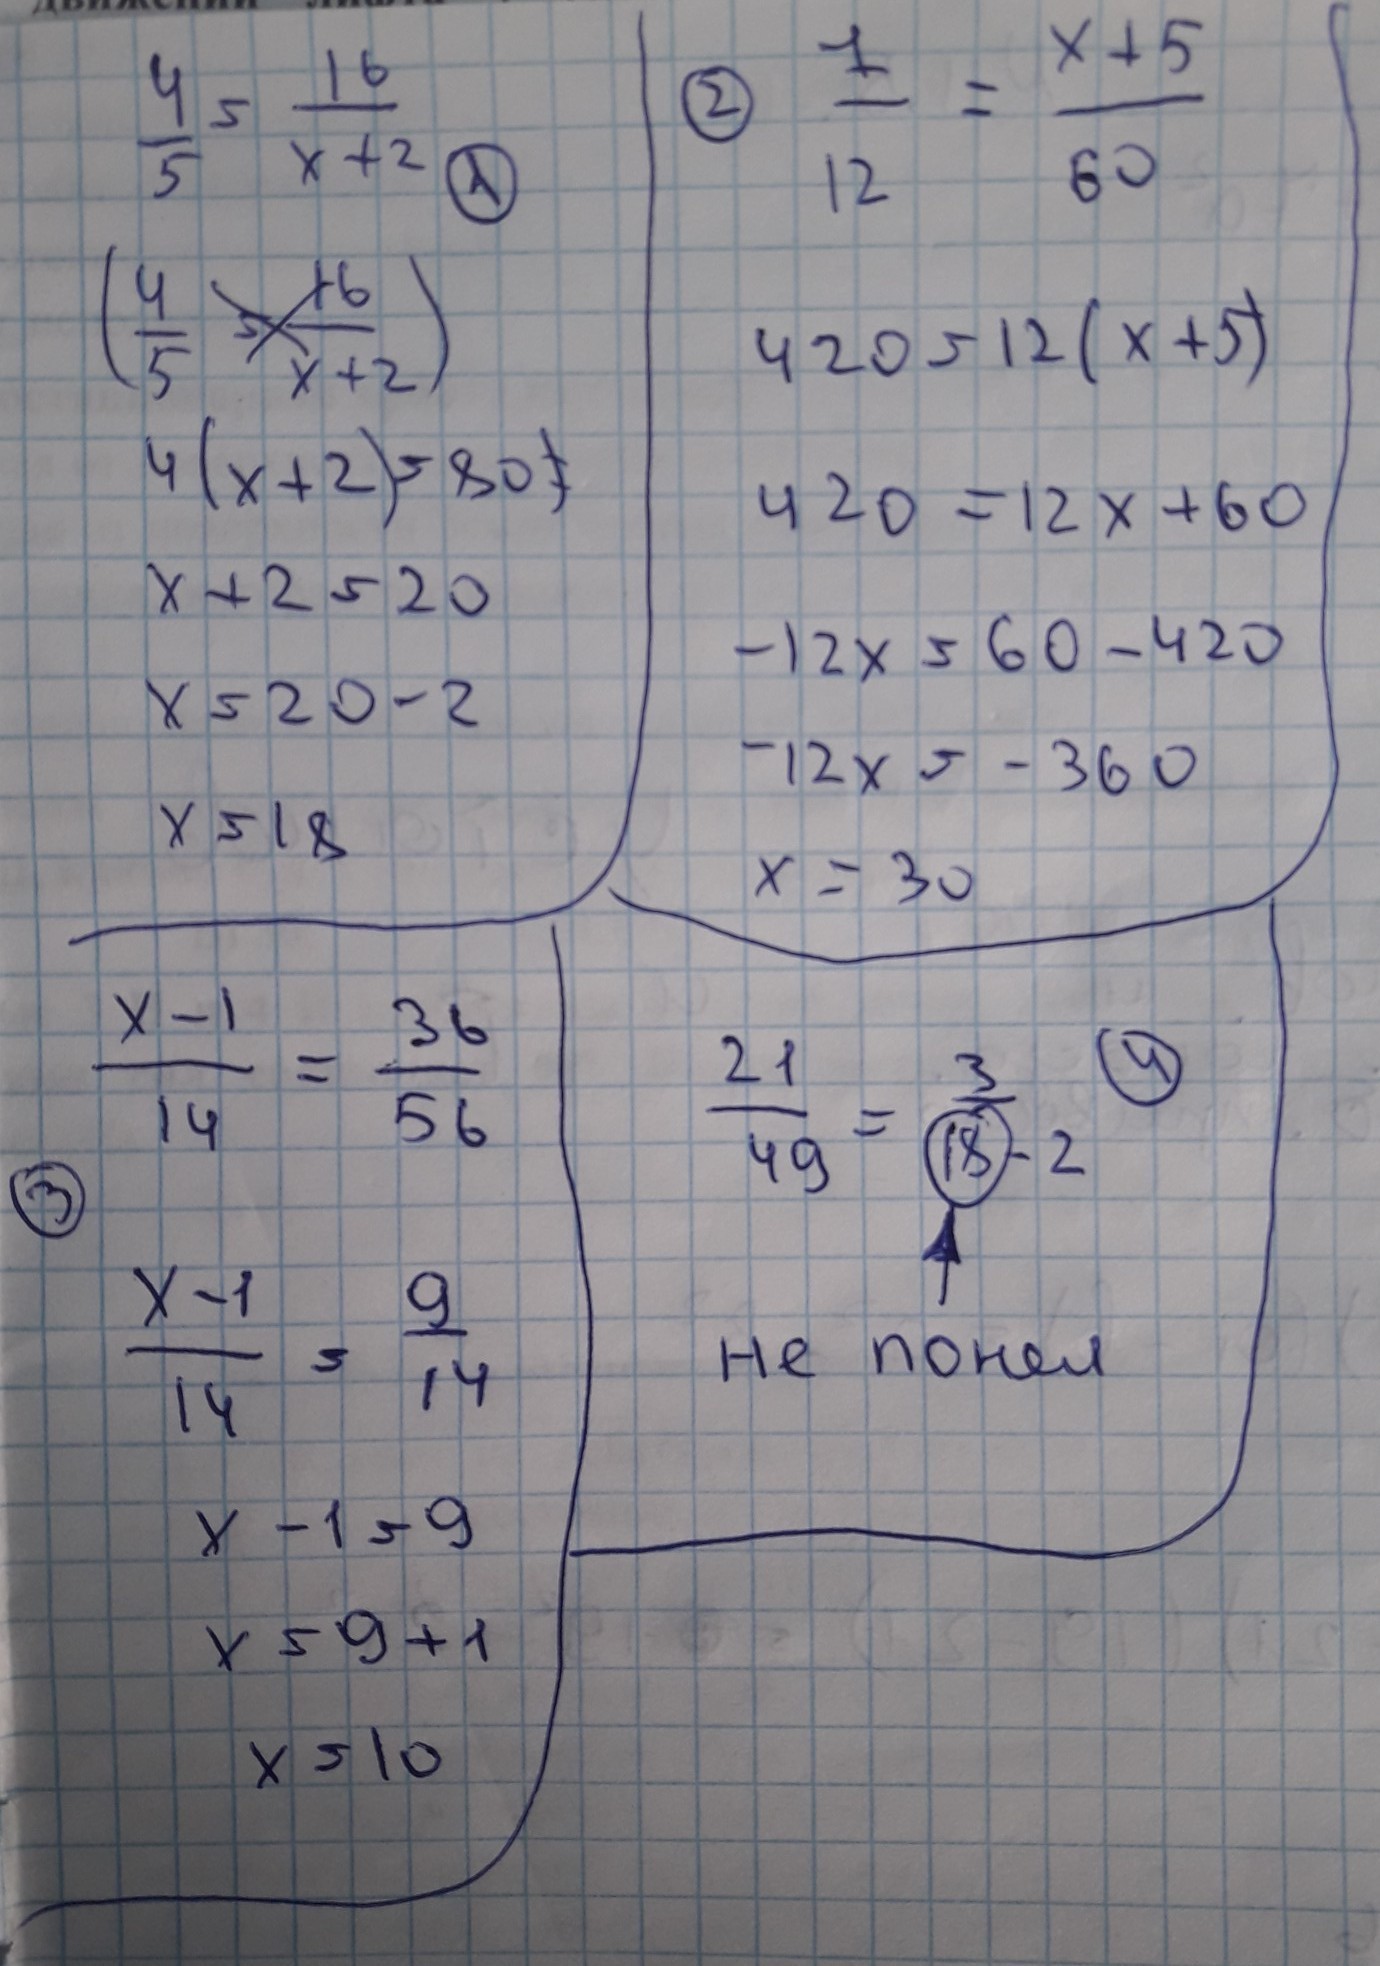 4/5 = 16/(x+2) ①
(4/5 = 16/(x+2))
4(x+2)=80;
x+2=20
x=20-2
x=18
② 7/12 = (x+5)/60
420=12(x+5)
420=12x+60
-12x=60-420
-12x=-360
x=30
③ (x-1)/14 = 36/56
(x-1)/14 = 9/14
x-1=9
x=9+1
x=10
21/49 = 3/(18-2) ④
не понел